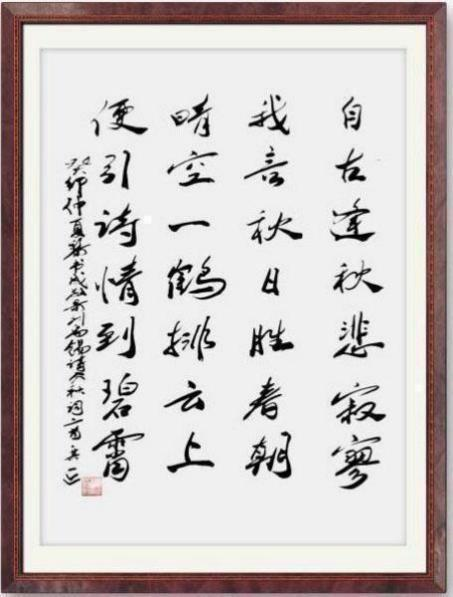 自古逢秋悲寂寥
我言秋日胜春朝
晴空一鹤排云上
便引诗情到碧霄
癸卯仲夏 书 刘禹锡 秋词一首